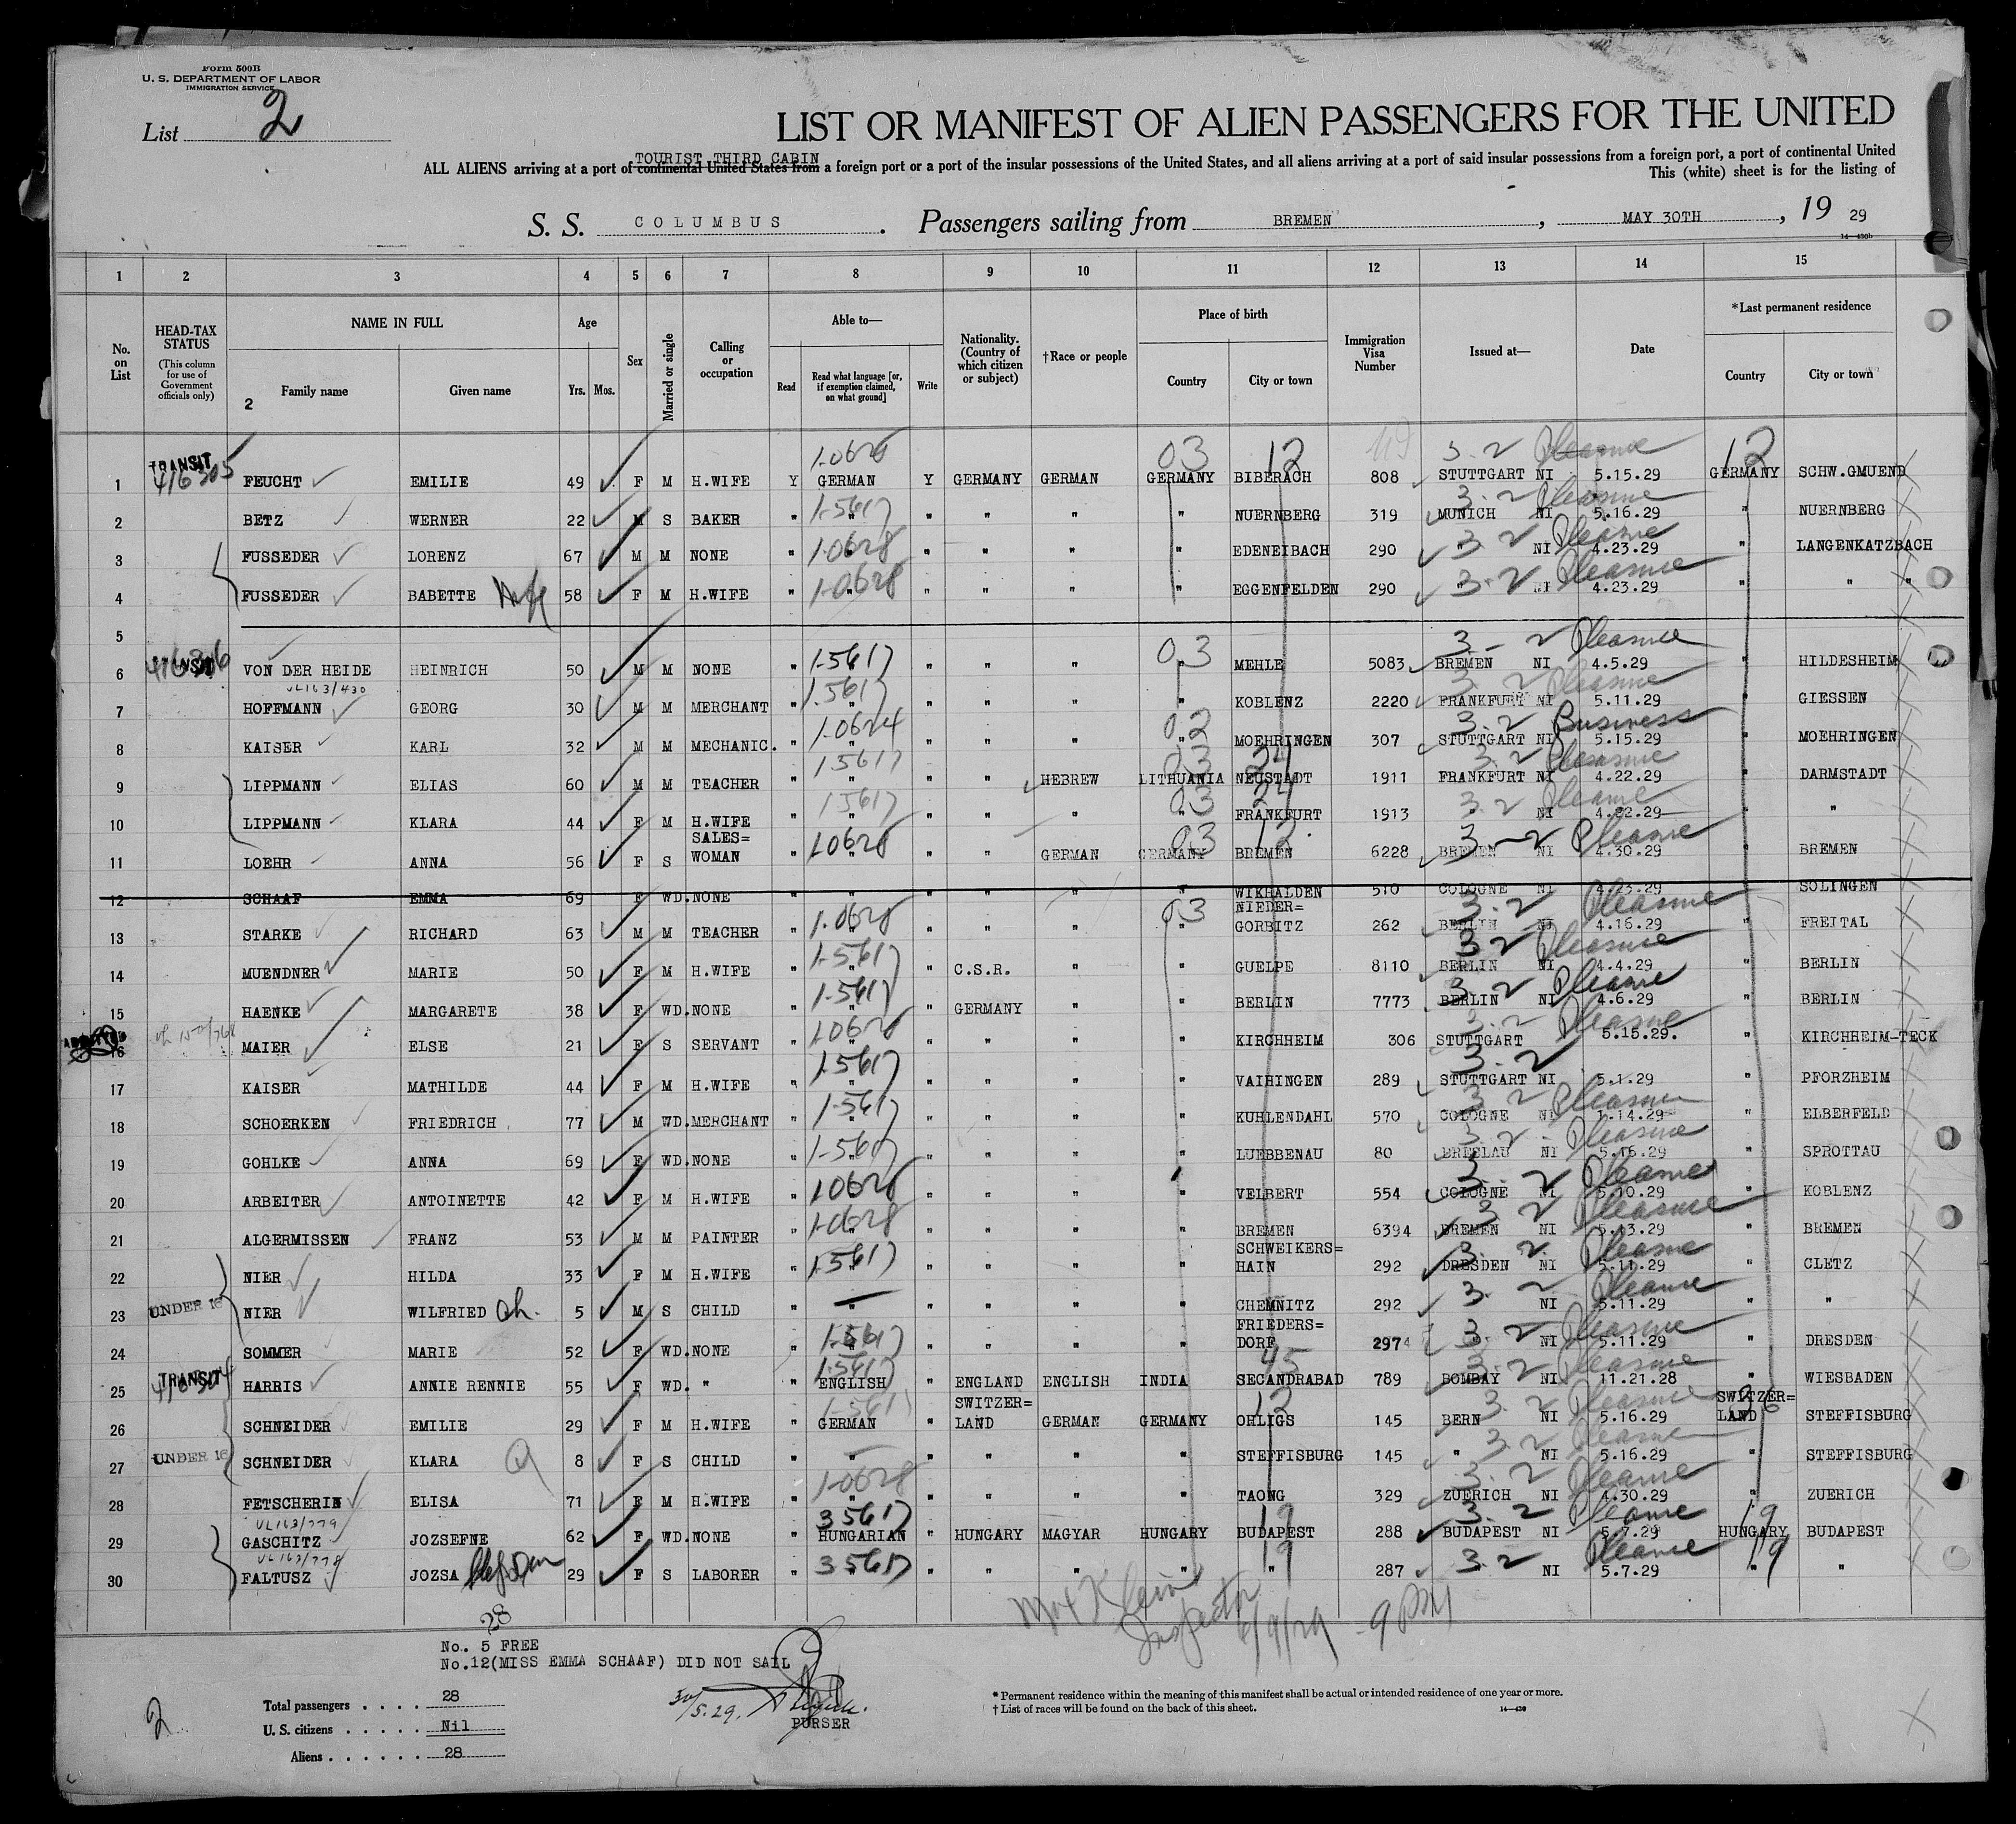 Form 500B
U. S. DEPARTMENT OF LABOR
IMMIGRATION SERVICE
List 2
LIST OR MANIFEST OF ALIEN PASSENGERS FOR THE UNITED
TOURIST THIRD CABIN
ALL ALIENS arriving at a port of continental United States from a foreign port or a port of the insular possessions of the United States, and all aliens arriving at a port of said insular possessions from a foreign port, a port of continental United
This (white) sheet is for the listing of
S. S. COLUMBUS. Passengers sailing from BREMEN, MAY 30TH, 19 29
14—430b
1 2 3 4 5 6 7 8 9 10 11 12 13 14 15
No. on List
HEAD-TAX STATUS (This column for use of Government officials only)
NAME IN FULL
Family name
Given name
2
Age
Yrs. Mos.
Sex
Married or single
Calling or occupation
Able to—
Read
Read what language [or, if exemption claimed, on what ground]
Write
Nationality. (Country of which citizen or subject)
†Race or people
Place of birth
Country
City or town
Immigration Visa Number
Issued at—
Date
*Last permanent residence
Country
City or town
1-0628 03 12 3-2 Pleasure 12
1 TRANSIT 416305 FEUCHT EMILIE 49 F M H.WIFE Y GERMAN Y GERMANY GERMAN GERMANY BIBERACH 808 STUTTGART NI 5.15.29 GERMANY SCHW.GMUEND
1-5617 3-2 Pleasure
2 BETZ WERNER 22 M S BAKER " " " " " " NUERNBERG 319 MUNICH NI 5.16.29 " NUERNBERG
1-0628 3-2 Pleasure
3 FUSSEDER LORENZ 67 M M NONE " " " " " " EDENEIBACH 290 " NI 4.23.29 " LANGENKATZBACH
1-0628 3-2 Pleasure
4 FUSSEDER BABETTE Wife 58 F M H.WIFE " " " " " " EGGENFELDEN 290 " NI 4.23.29 " " "
5
1-5617 03 3-2 Pleasure
6 TRANSIT VON DER HEIDE HEINRICH 50 M M NONE " " " " " " MEHLE 5083 BREMEN NI 4.5.29 " HILDESHEIM
VL163/430 1-5617 3-2 Pleasure
7 HOFFMANN GEORG 30 M M MERCHANT " " " " " " KOBLENZ 2220 FRANKFURT NI 5.11.29 " GIESSEN
1-0624 02 3-2 Business
8 KAISER KARL 32 M M MECHANIC. " " " " " " MOEHRINGEN 307 STUTTGART NI 5.15.29 " MOEHRINGEN
1 5617 03 24 3-2 Pleasure
9 LIPPMANN ELIAS 60 M M TEACHER " " " " HEBREW LITHUANIA NEUSTADT 1911 FRANKFURT NI 4.22.29 " DARMSTADT
1 5617 03 24 3-2 Pleasure
10 LIPPMANN KLARA 44 F M H.WIFE " " " " " " FRANKFURT 1913 " NI 4.22.29 " "
10628 03 12 3-2 Pleasure
11 LOEHR ANNA 56 F S SALES= WOMAN " " " " GERMAN GERMANY BREMEN 6228 BREMEN NI 4.30.29 " BREMEN
12 SCHAAF EMMA 69 F WD. NONE " " " " " " WIKHALDEN 510 COLOGNE NI 4.23.29 SOLINGEN
1-0628 03 3-2 Pleasure
13 STARKE RICHARD 63 M M TEACHER " " " " " " NIEDER= GORBITZ 262 BERLIN NI 4.16.29 " FREITAL
1-5617 3-2 Pleasure
14 MUENDNER MARIE 50 F M H.WIFE " " " C.S.R. " " GUELPE 8110 BERLIN NI 4.4.29 " BERLIN
1-5617 3-2 Pleasure
15 HAENKE MARGARETE 38 F WD. NONE " " " GERMANY " " BERLIN 7773 BERLIN NI 4.6.29 " BERLIN
10628 3-2 Pleasure
16 MAIER ELSE 21 F S SERVANT " " " " " " KIRCHHEIM 306 STUTTGART 5.15.29. " KIRCHHEIM-TECK
1-5617 3-2
17 KAISER MATHILDE 44 F M H.WIFE " " " " " " VAIHINGEN 289 STUTTGART NI 5.1.29 " PFORZHEIM
1-5617 3-2 Pleasure
18 SCHOERKEN FRIEDRICH 77 M WD. MERCHANT " " " " " " KUHLENDAHL 570 COLOGNE NI 1.14.29 " ELBERFELD
1-5617 3-2 Pleasure
19 GOHLKE ANNA 69 F WD. NONE " " " " " " LUEBBENAU 80 BRESLAU NI 5.16.29 " SPROTTAU
10628 3-2 Pleasure
20 ARBEITER ANTOINETTE 42 F M H.WIFE " " " " " " VELBERT 554 COLOGNE NI 5.10.29 " KOBLENZ
1-0628 3-2 Pleasure
21 ALGERMISSEN FRANZ 53 M M PAINTER " " " " " " BREMEN 6394 BREMEN NI 5.13.29 " BREMEN
1-5617 3-2 Pleasure
22 NIER HILDA 33 F M H.WIFE " " " " " " SCHWEIKERS= HAIN 292 DRESDEN NI 5.11.29 " CLETZ
3-2 Pleasure
23 UNDER 16 NIER WILFRIED Ch. 5 M S CHILD " " " " " " CHEMNITZ 292 NI 5.11.29 " "
1-5617 3-2 Pleasure
24 SOMMER MARIE 52 F WD. NONE " " " " " " FRIEDERS= DORF 2974 " NI 5.11.29 " DRESDEN
1-5617 45 3-2 Pleasure
25 TRANSIT 416304 HARRIS ANNIE RENNIE 55 F WD. " " ENGLISH " ENGLAND ENGLISH INDIA SECANDRABAD 789 BOMBAY NI 11.21.28 " WIESBADEN
1-5617 12 3-2 Pleasure 36
26 SCHNEIDER EMILIE 29 F M H.WIFE " GERMAN " SWITZER= LAND GERMAN GERMANY OHLIGS 145 BERN NI 5.16.29 SWITZER= LAND STEFFISBURG
3-2 Pleasure
27 UNDER 16 SCHNEIDER KLARA 8 F S CHILD " " " " " " STEFFISBURG 145 " NI 5.16.29 " STEFFISBURG
1-0628 3-2 Pleasure
28 FETSCHERIN ELISA 71 F M H.WIFE " " " " " " TAONG 329 ZUERICH NI 4.30.29 " ZUERICH
VL163/779 3 5617 19 3-2 Pleasure 19
29 GASCHITZ JOZSEFNE 62 F WD. NONE " HUNGARIAN " HUNGARY MAGYAR HUNGARY BUDAPEST 288 BUDAPEST NI 5.7.29 HUNGARY BUDAPEST
VL163/778 3 5617 19 3-2 Pleasure 19
30 FALTUSZ JOZSA 29 F S LABORER " " " " " " " 287 NI 5.7.29 " "
Max Klein
Inspector 6/9/29 - 9 PM
28
No. 5 FREE
No.12(MISS EMMA SCHAAF) DID NOT SAIL
Total passengers . . . . 28
U. S. citizens . . . . . Nil
Aliens . . . . . . 28
2
30/5.29.
PURSER
* Permanent residence within the meaning of this manifest shall be actual or intended residence of one year or more.
† List of races will be found on the back of this sheet.
14—430